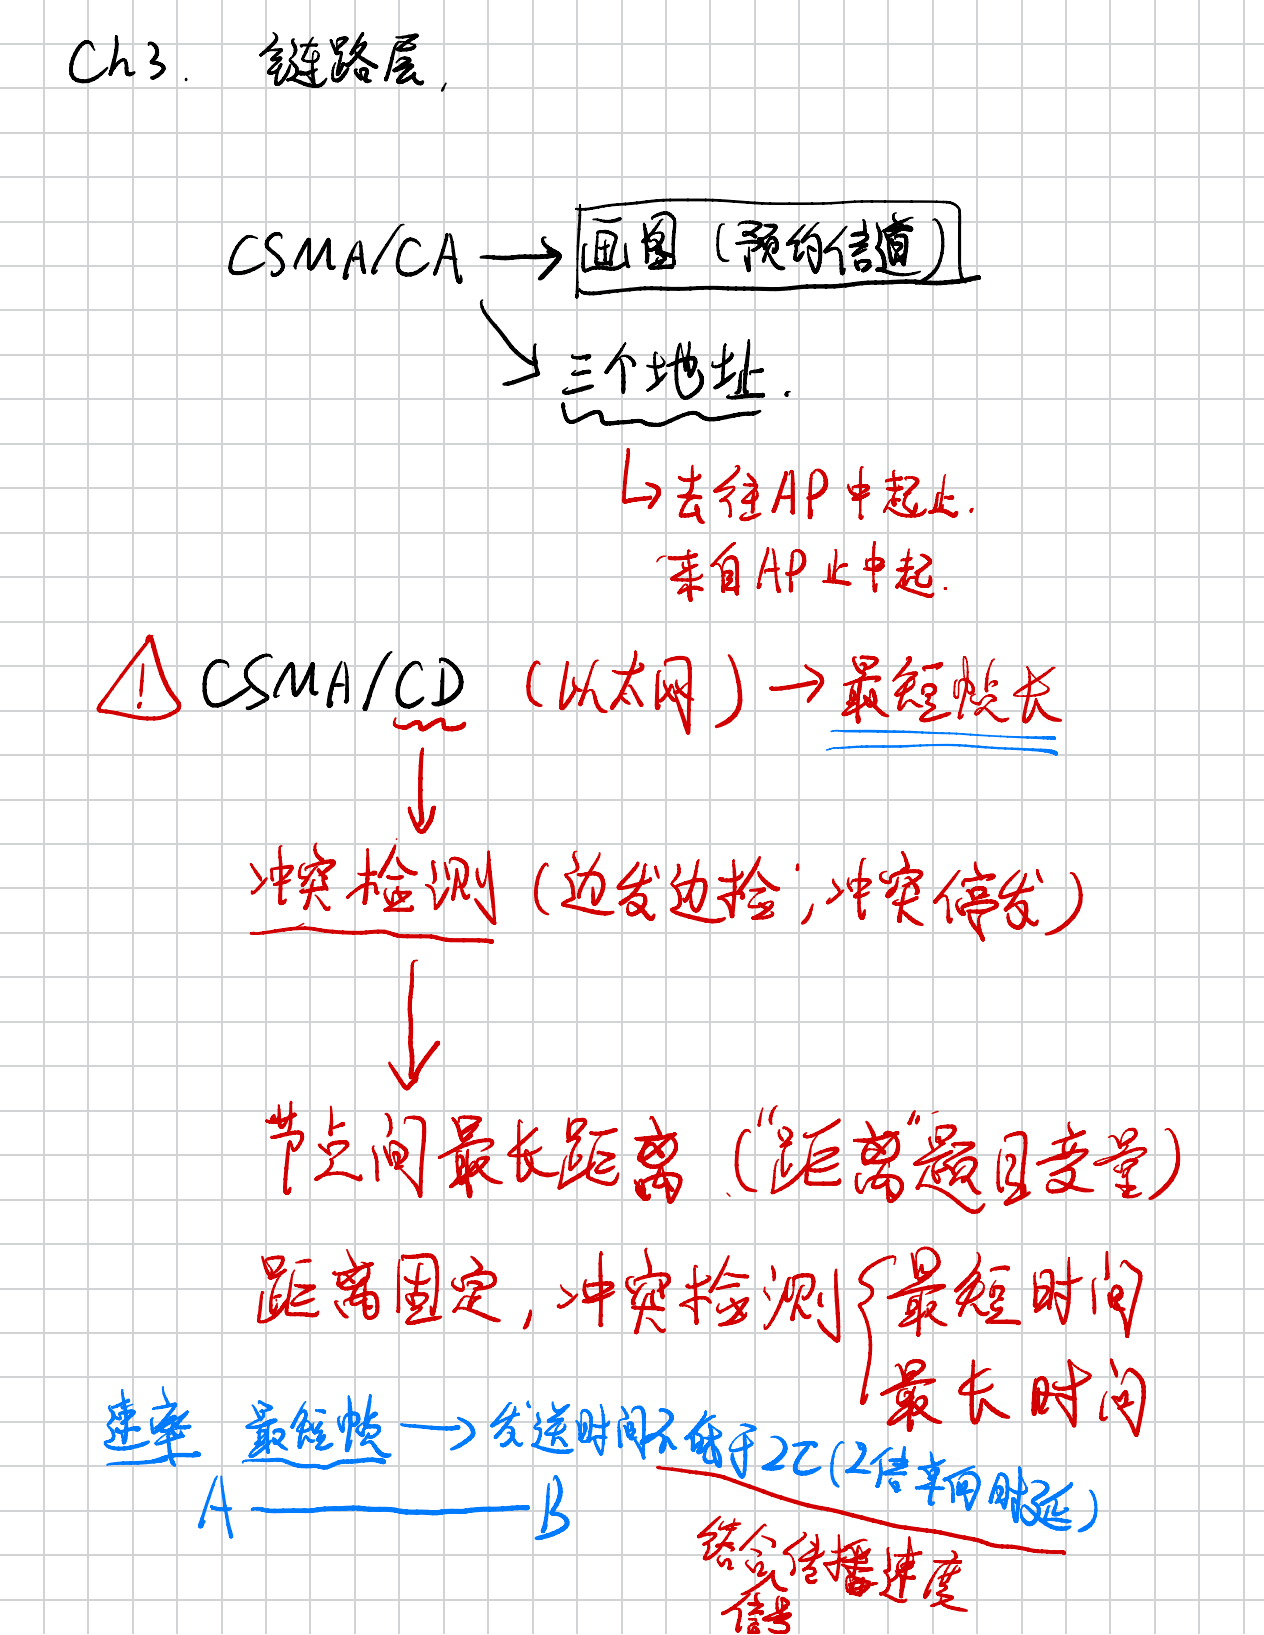 Ch3. 链路层.
CSMA/CA → 画图 (预约信道)
三个地址.
↳ 去往AP中起止.
来自AP止中起.
! CSMA/CD (以太网) → 最短帧长
冲突检测 (边发边检; 冲突停发)
节点间最长距离 ("距离"题目变量)
距离固定, 冲突检测 { 最短时间
最长时间
速率 最短帧 → 发送时间不低于2τ (2倍单向时延)
A B
结合传播速度
信号